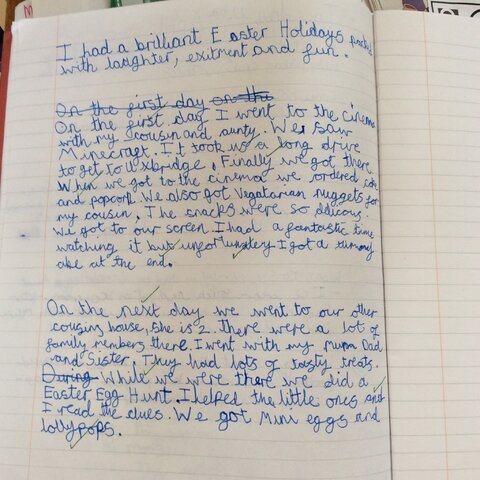 I had a brilliant Easter Holidays packed
with laughter, exitment and fun.
On the first day on the
On the first day I went to the cinema
with my cousin and aunty. We saw
Minecraft. It took us a long drive
to get to Uxbridge. Finally we got there.
When we got to the cinema we ordered coke
and popcorn. We also got Vegatarian nuggets for
my cousin. The snacks were so delicous.
We got to our screen I had a fantastic time
watching it but unfortunatley I got a tummy
ake at the end.
On the next day we went to our other
cousins house, she is 2. There were a lot of
family members there. I went with my Mum Dad
and Sister. They had lots of tasty treats.
During While we were there we did a
Easter Egg Hunt. I helped the little ones and
I read the clues. We got Mini eggs and
lollypops.